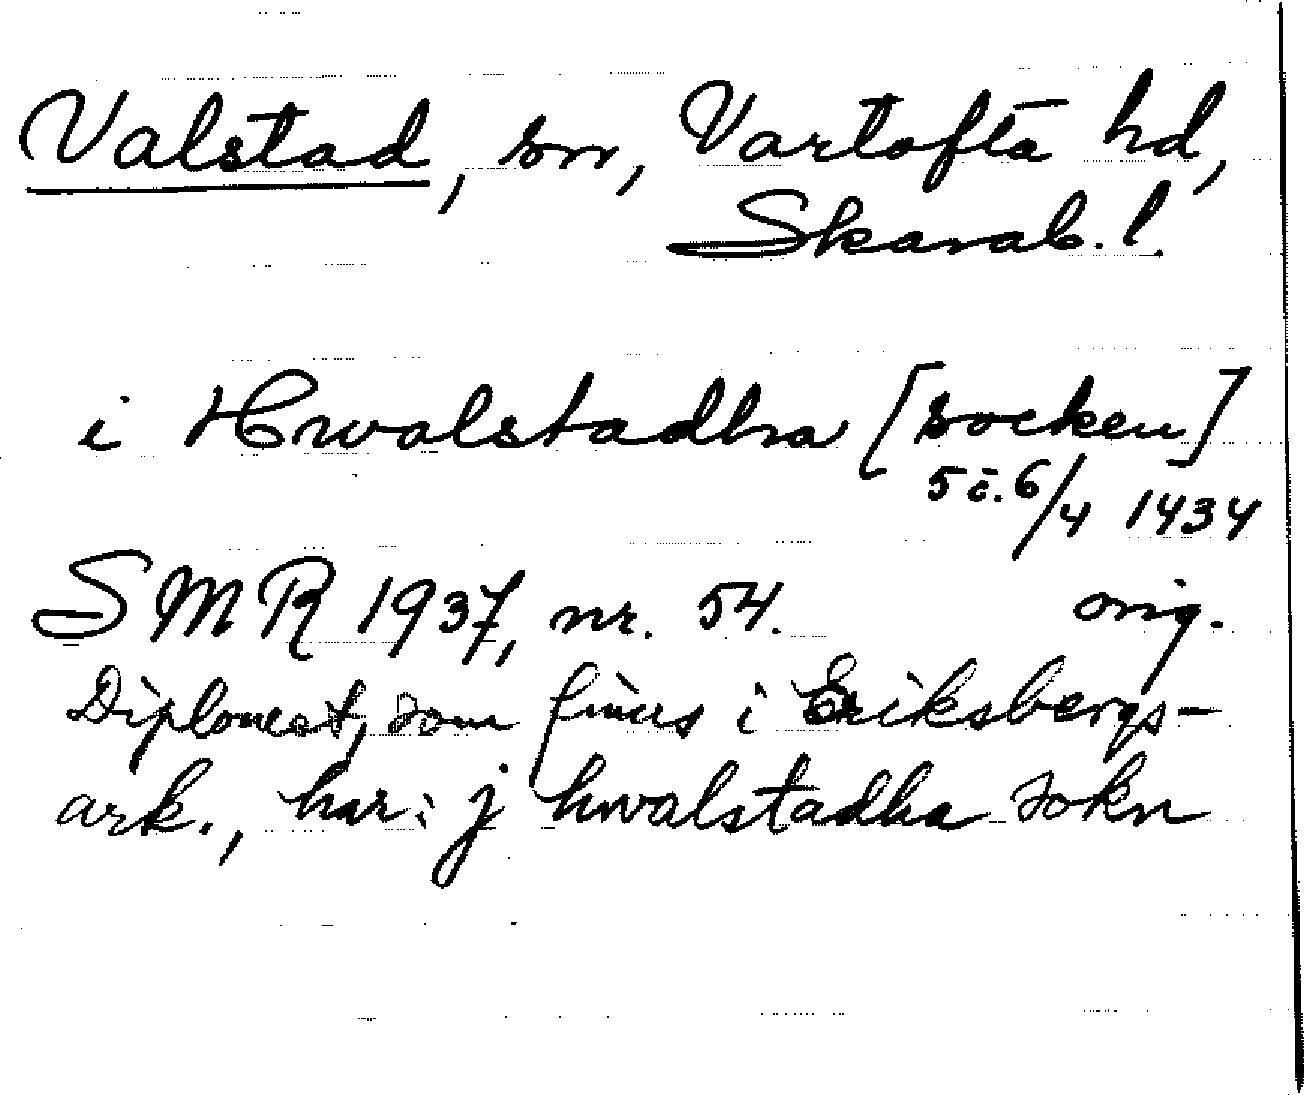 Valstad, sn, Vartofta hd,
Skarab. l.
i Hwalstadha [socken]
5 ĉ. 6/4 1434
SMR 1937, nr. 54. orig.
Diplomet, som finns i Eriksbergs-
ark., har: j hwalstadha sokn